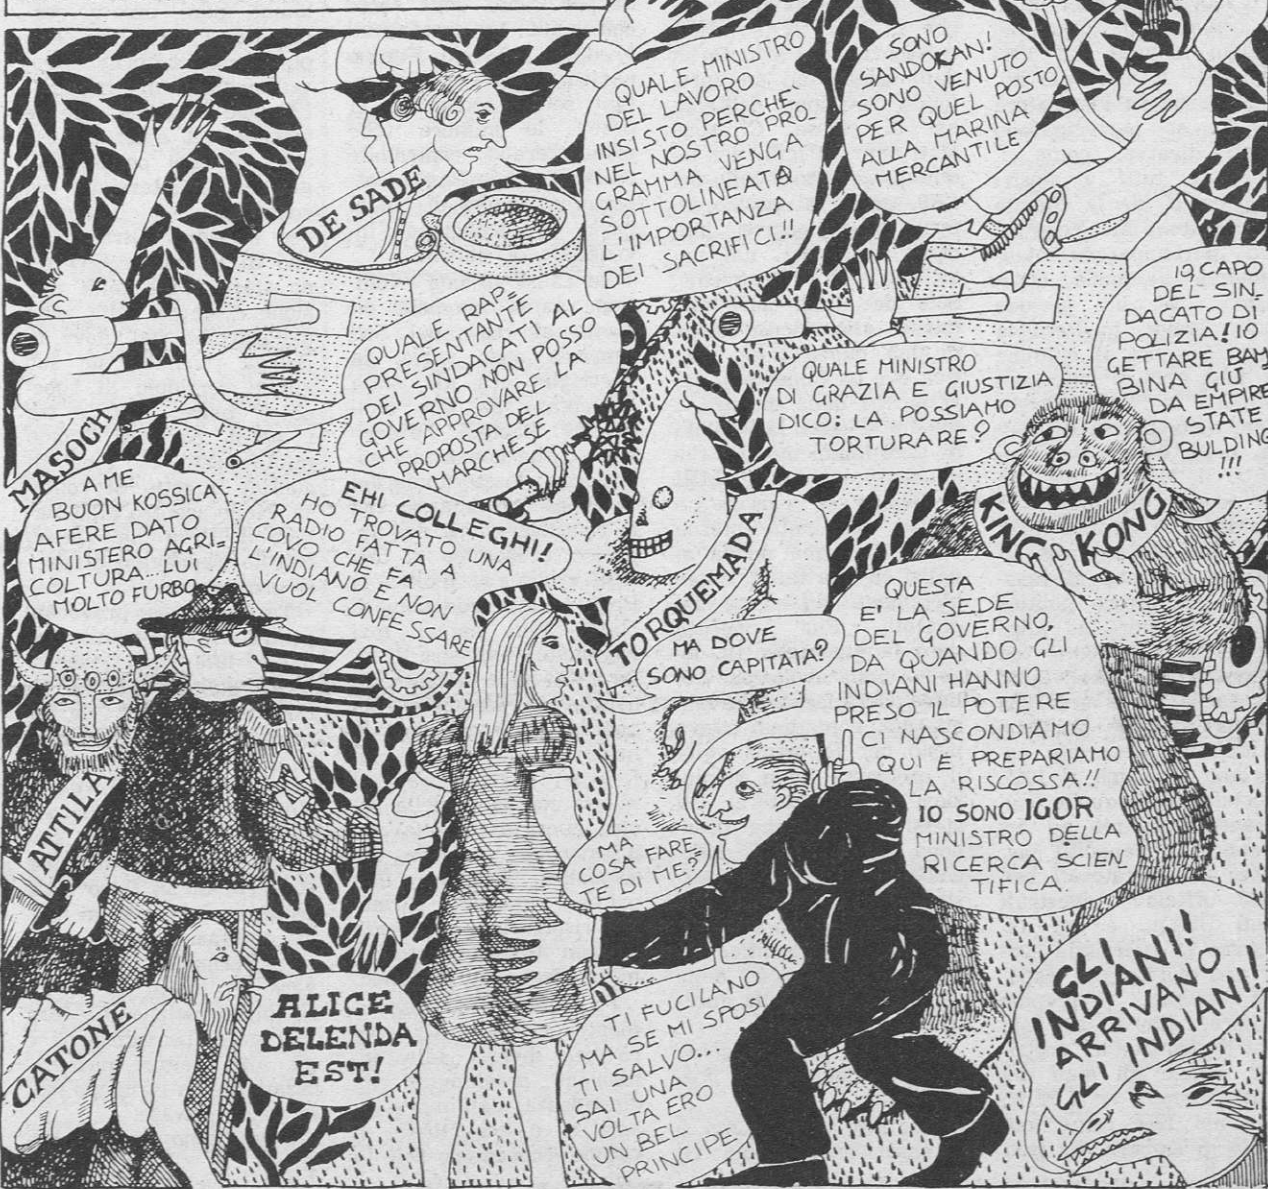 QUALE MINISTRO
DEL LAVORO
INSISTO PERCHE'
NEL NOSTRO PRO-
GRAMMA VENGA
SOTTOLINEATA
L'IMPORTANZA
DEI SACRIFICI!!
SONO
SANDOKAN!
SONO VENUTO
PER QUEL POSTO
ALLA MARINA
MERCANTILE
DE SADE
QUALE RAP=
PRESENTANTE
DEI SINDACATI AL
GOVERNO NON POSSO
CHE APPROVARE LA
PROPOSTA DEL
MARCHESE
MASOCH
QUALE MINISTRO
DI GRAZIA E GIUSTIZIA
DICO: LA POSSIAMO
TORTURARE?
IO CAPO
DEL SIN_
DACATO DI
POLIZIA! IO
GETTARE BAM
BINA GIU'
DA EMPIRE
STATE
BULDING
!!!
KING KONG
A ME
BUON KOSSICA
AFERE DATO
MINISTERO AGRI=
COLTURA... LUI
MOLTO FURBO
EHI COLLEGHI!
HO TROVATO UNA
RADIO FATTA A
COVO CHE FA
L'INDIANO E NON
VUOL CONFESSARE
TORQUEMADA
MA DOVE
SONO CAPITATA?
QUESTA
E' LA SEDE
DEL GOVERNO,
DA QUANDO GLI
INDIANI HANNO
PRESO IL POTERE
CI NASCONDIAMO
QUI E PREPARIAMO
LA RISCOSSA!!
IO SONO IGOR
MINISTRO DELLA
RICERCA SCIEN_
TIFICA.
ATTILA
MA
COSA FARE
TE DI ME?
CATONE
ALICE
DELENDA
EST!
TI FUCILANO
MA SE MI SPOSI
TI SALVO...
SAI UNA
VOLTA ERO
UN BEL
PRINCIPE
GLI
INDIANI!
ARRIVANO
GLI INDIANI!